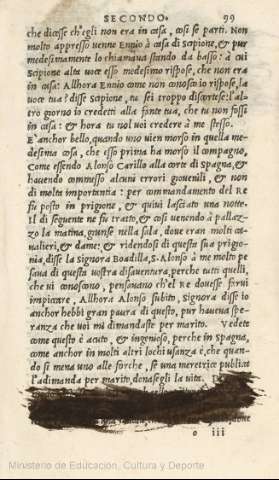 SECONDO. 99
che dicesse ch'egli non era in casa, così se parti. Non
molto appresso venne Ennio à casa di Scipione, & pur
medesimamente lo chiamava stando da basso: à cui
Scipione alta voce esso medesimo rispose, che non era
in casa: Allhora Ennio come non conosco io rispose, la
voce tua? disse Scipione, tu sei troppo discortese: l'al=
tro giorno io credetti alla fante tua, che tu non fossi
in casa: & hora tu nol voi credere à me stesso.
E' anchor bello, quando uno vien morso in quella me=
desima cosa, che esso prima ha morso il compagno,
Come essendo Alonso Carillo alla corte di Spagna, &
havendo commesso alcuni errori giovenili, & non
di molta importantia: per commandamento del RE
fu posto in prigione, & quivi lasciato una notte.
Il di seguente ne fu tratto, & così venendo à pallaz=
zo la matina, giunse nella sala, dove eran molti ca=
valieri, & dame: & ridendosi di questa sua prigio=
nia, disse la signora Boadilla, S. Alonso à me molto pe
sava di questa vostra disaventura, perche tutti quelli,
che vi conoscono, pensavano ch'el RE dovesse farvi
impiccare, Allhora Alonso subito, Signora disse io
anchor hebbi gran paura di questo, pur haveva spe=
ranza che voi mi dimandaste per marito. Vedete
come questo è acuto, & ingenioso, perche in Spagna,
come anchor in molti altri lochi usanza è, che quan=
do si mena uno alle forche, se una meretrice publica
l'adimanda per marito, donasegli la vita.
o iii
Ministerio de Educación, Cultura y Deporte